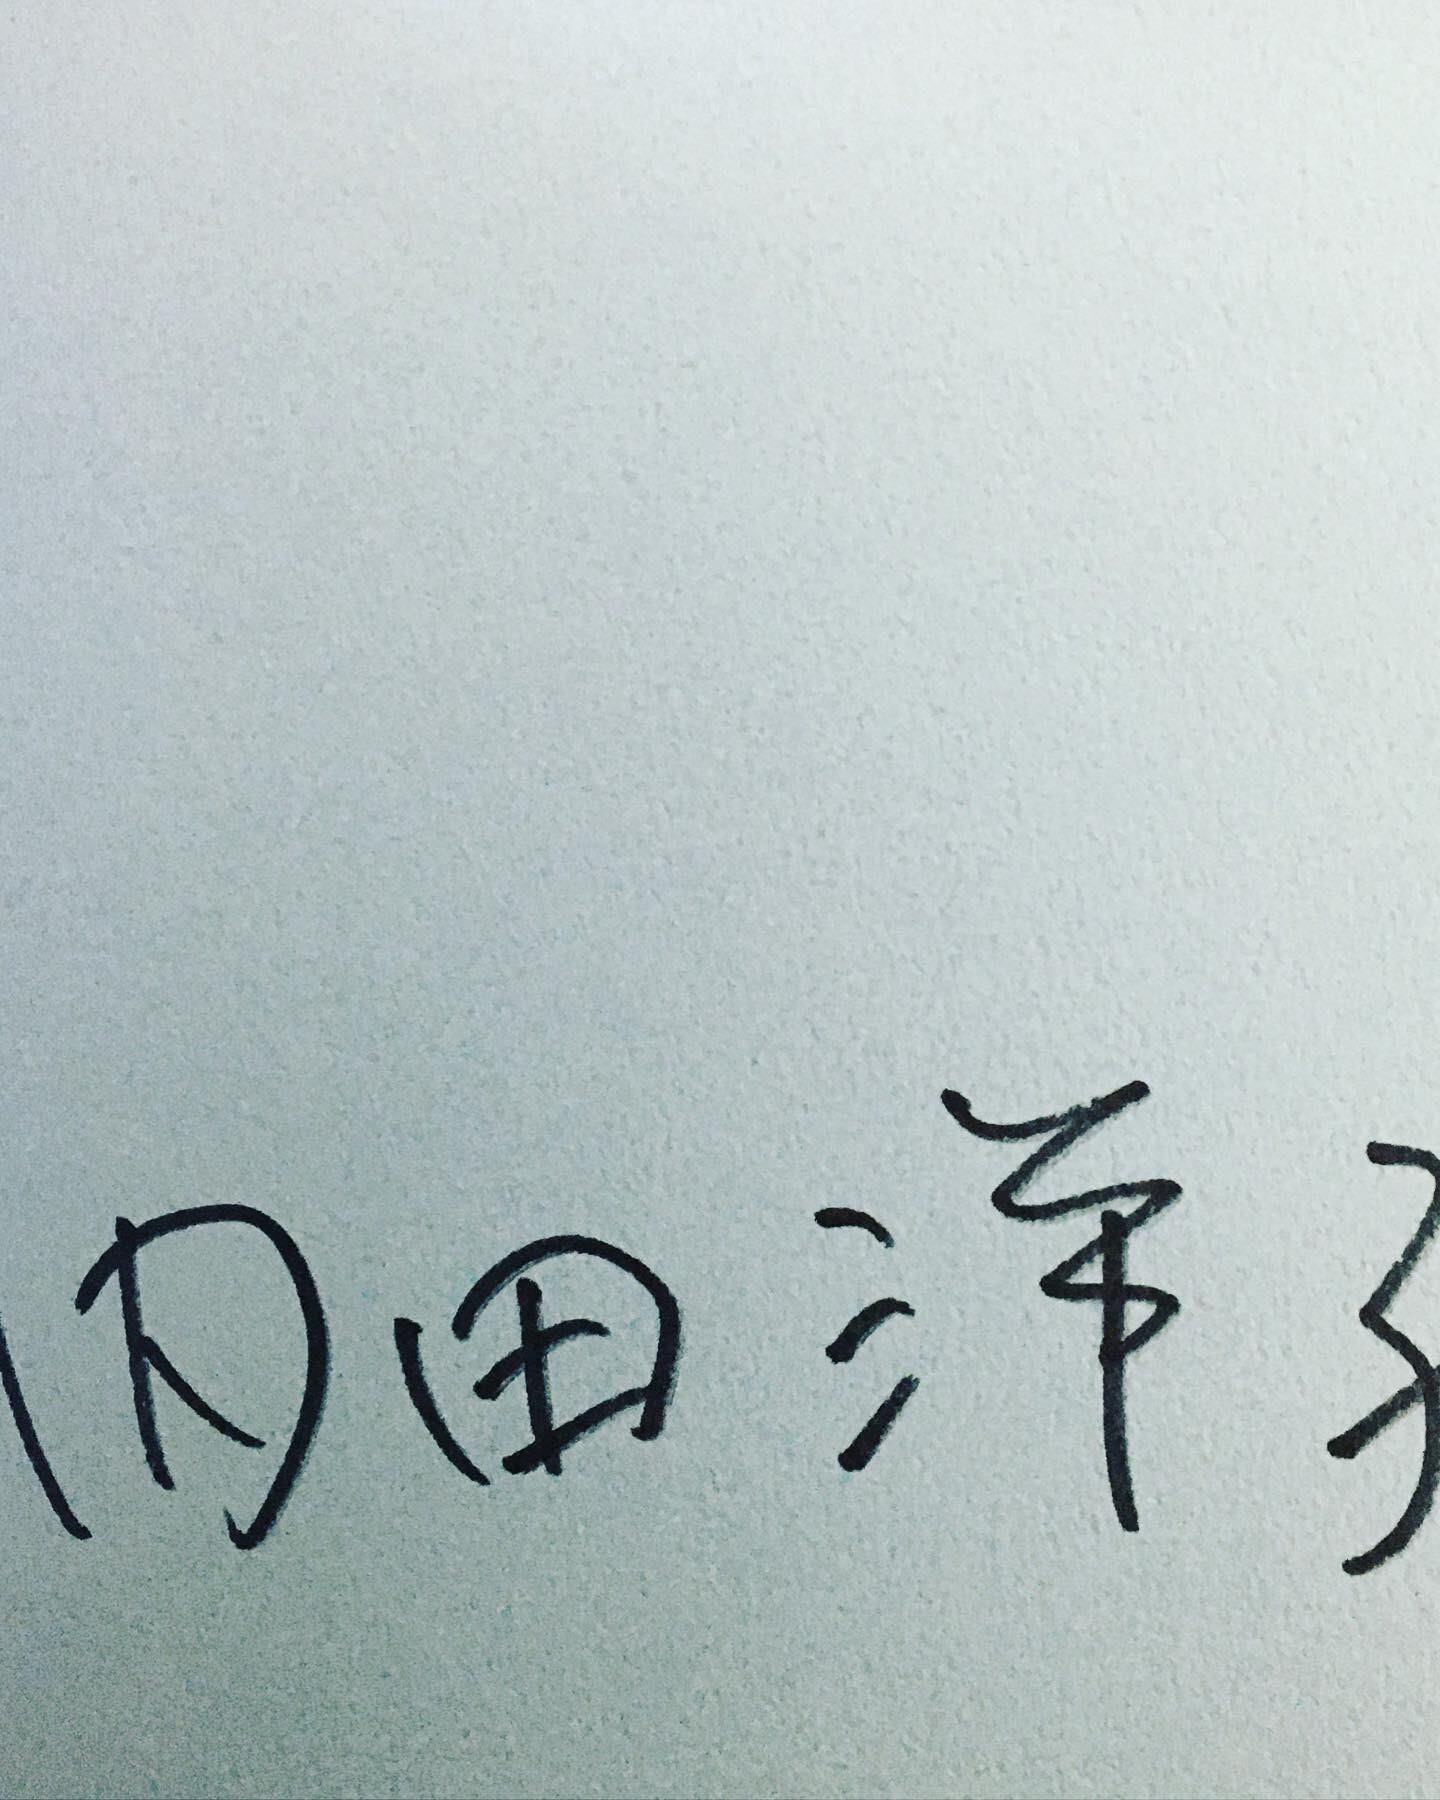 内田洋子